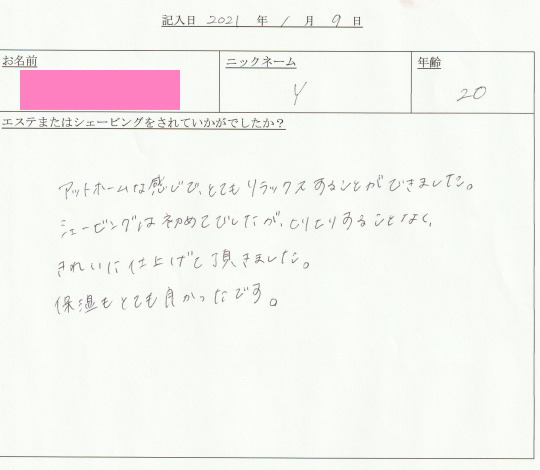 記入日 2021 年 1 月 9 日
お名前
ニックネーム
年齢
Y
20
エステまたはシェービングをされていかがでしたか?
アットホームな感じで、とてもリラックスすることができました。
シェービングは初めてでしたが、ヒリヒリすることなく、
きれいに仕上げて頂きました。
保湿もとても良かったです。